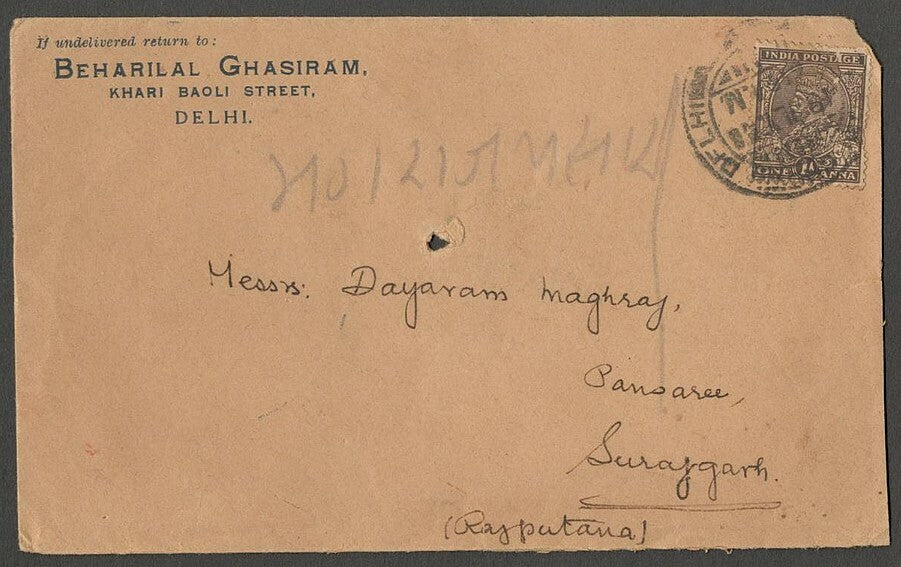 If undelivered return to:
BEHARILAL GHASIRAM,
KHARI BAOLI STREET,
DELHI.
INDIA POSTAGE
ONE 1A ANNA
DELHI
Messrs. Dayaram Maghraj,
Pansaree,
Surajgarh.
(Rajputana)